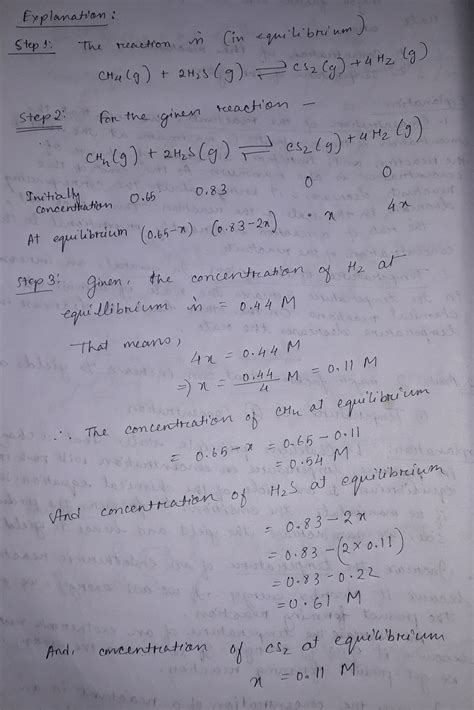 Explanation:
Step 1: The reaction is (in equilibrium)
CH4(g) + 2H2S(g) ⇌ CS2(g) + 4H2(g)
Step 2: For the given reaction –
CH4(g) + 2H2S(g) ⇌ CS2(g) + 4H2(g)
Initially concentration 0.65 0.83 0 0
At equilibrium (0.65-x) (0.83-2x) x 4x
Step 3: Given, the concentration of H2 at
equillibrium is = 0.44 M
That means,
4x = 0.44 M
=) x = 0.44/4 M = 0.11 M
∴ The concentration of CH4 at equilibrium
= 0.65-x = 0.65-0.11
= 0.54 M
And concentration of H2S at equilibrium
= 0.83-2x
= 0.83-(2×0.11)
= 0.83-0.22
= 0.61 M
And, concentration of CS2 at equilibrium
x = 0.11 M